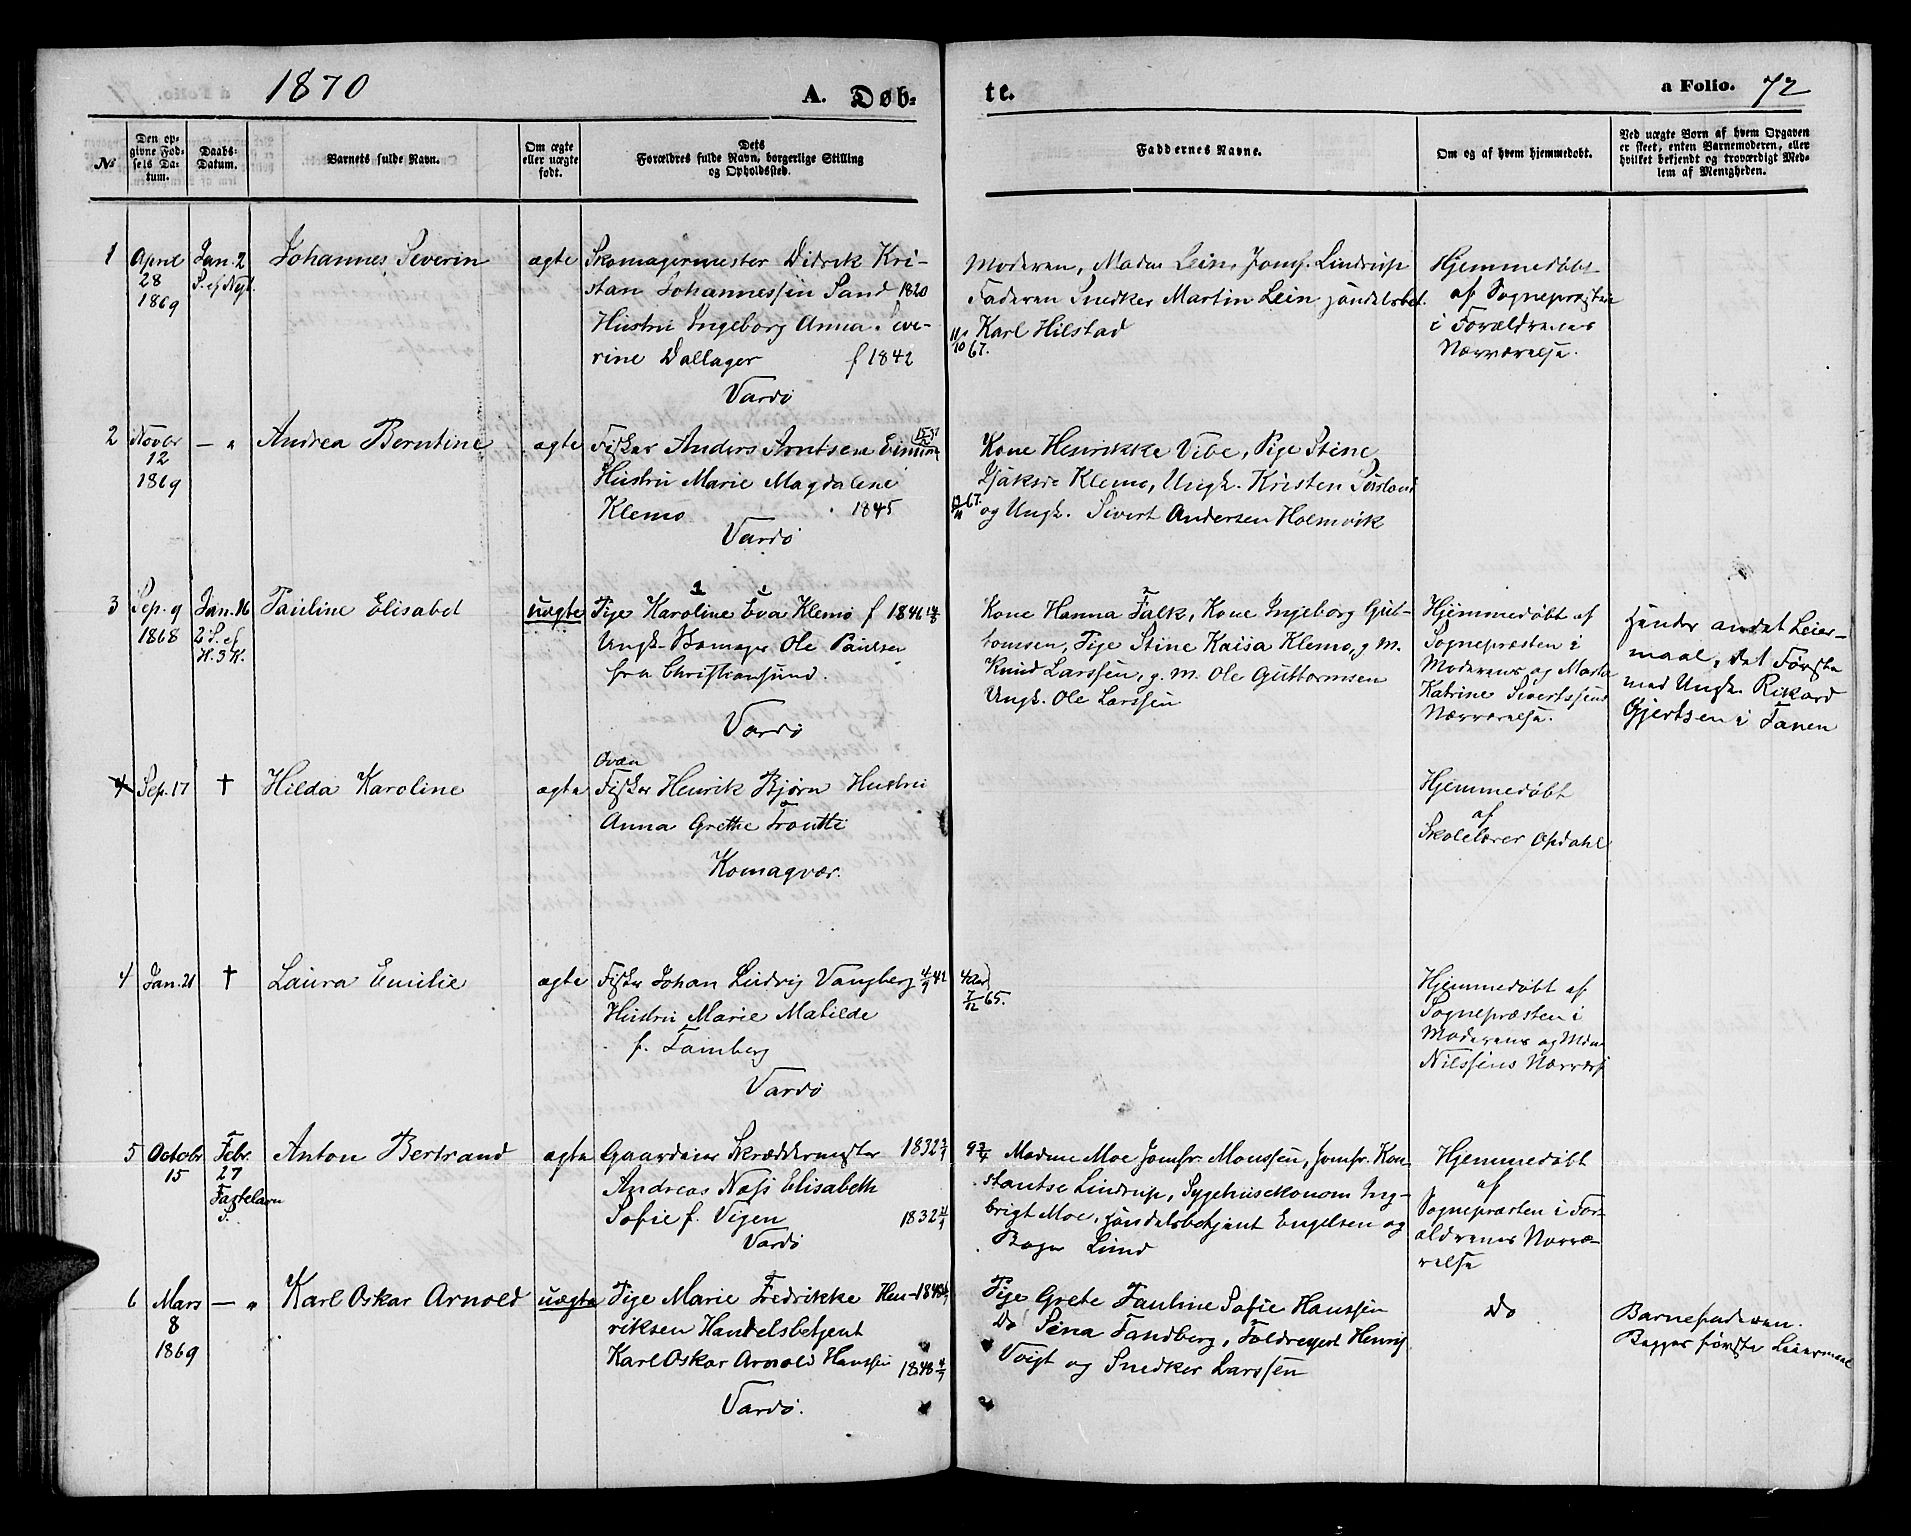 1870
A. Døb-
te.
a Folio. 72
No
Den op-
givne Fød-
sels Da-
tum.
Daabs-
Datum.
Barnets fulde Navn.
Om ægte
eller uægte
født.
Dets
Forældres fulde Navn, borgerlige Stilling
og Opholdssted.
Faddernes Navne.
Om og af hvem hjemmedøbt.
Ved uægte Børn af hvem Opgaven
er skeet, enten Barnemoderen, eller
hvilket bekjendt og troværdigt Med-
lem af Menigheden.
1
April
28
1869
Jan. 2
S. ef Nyt.
Johannes Severin
ægte
Skomagermester Didrik Kri-
stan Johannessen Sand 1820
Hustru Ingeborg Anna Seve-
rine Dallager f 1842
Vardø
11/10 67.
Moderen, Madm Lein, Jomf. Lindrup
Faderen Snedker Martin Lein, Handelsbet.
Karl Hilstad
Hjemmedøbt
af Sognepræsten
i Forældrenes
Nærværelse.
2
Novbr
12
1869
— "
Andrea Berntine
ægte
Fisker Anders Arntsen
Hustru Marie Magdalene
Klemo 1845
Vardø
67.
Kone Henrikke Vibe, Pige Stine
Klemo, Ungk. Kristen
og Ungk. Sivert Andersen Holmvik
3
Sep. 9
1868
Jan. 16
2 S. ef
H. 3 K.
Pauline Elisabet
uægte
Pige Karoline Eva Klemo f 1846
Ungk. Skomager Ole Paulsen
fra Christiansund.
Vardø
Kone Hanna Falk, Kone Ingeborg Gut-
tomsen, Pige Stine Kaisa Klemo, g. M.
Knud Larssen, g. M. Ole Guttormsen
Ungk. Ole Larssen
Hjemmedøbt af
Sognepræsten i
Moderens og Marta
Katrine Sivertssens
Nærværelse.
Hendes andet Leier-
maal, det Første
med Ungk. Rikard
Gjertsen i Tanen
4
Sep. 17
†
Hilda Karoline
ægte
Qvæn
Fisker Henrik Bjørn Hustru
Anna Grethe
Komagvær.
Hjemmedøbt
af
Skolelærer Opdahl
4
Jan. 21
†
Laura Emilie
ægte
Fisker Johan Ludvig Vangberg 42
Hustru Marie Matilde
f. Tamberg
Vardø
7/12 65.
Hjemmedøbt af
Sognepræsten i
Moderens og Mdm
Nilssens Nærværs
5
Octobr
15
Febr.
27
Fastelavn
S.
Anton Bertrand
ægte
Gaardeier Skræddermester 1832
Andreas Næss Elisabeth
Sofie f. Vigen 1832
Vardø
Madme Moe Jomfr. Monssen, Jomfr. Kon-
stantse Lindrup, Sygehusekonom Ing-
brigt Moe, Handelsbetjent Engelsen og
Bager Lund
Hjemmedøbt
af
Sognepræsten i For-
ældrenes Nærvæ-
relse
6
Mars
8
1869
— "
Karl Oskar Arnold
uægte
Pige Marie Fredrikke Hen-
riksen Handelsbetjent
Karl Oskar Arnold Hanssen 1848
Vardø.
Pige Grete Pauline Sofie Hanssen
Do Sina Tandberg, Toldreyert Henrik
Voigt og Snedker Larssen
Do
Barnefaderen.
Begges første Leiermaal